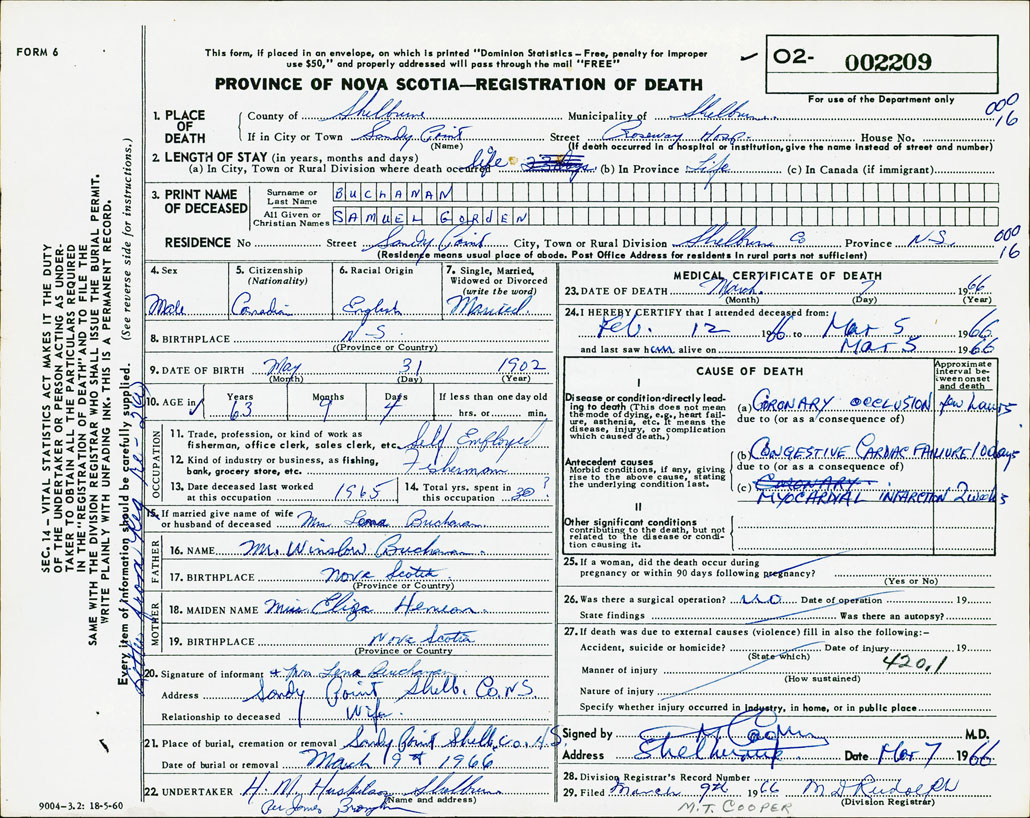 FORM 6
This form, if placed in an envelope, on which is printed "Dominion Statistics – Free, penalty for improper
use $50," and properly addressed will pass through the mail "FREE"
PROVINCE OF NOVA SCOTIA—REGISTRATION OF DEATH
O2- 002209
For use of the Department only
000
16
1. PLACE OF DEATH County of Shelburne Municipality of Shelburne
If in City or Town Sandy Point Street Roseway Hosp. House No.
(Name) (If death occurred in a hospital or institution, give the name instead of street and number)
2. LENGTH OF STAY (in years, months and days)
(a) In City, Town or Rural Division where death occurred life (b) In Province Life (c) In Canada (if immigrant)
3. PRINT NAME OF DECEASED
Surname or Last Name BUCHANAN
All Given or Christian Names SAMUEL GORDEN
000
16
RESIDENCE No Street Sandy Point City, Town or Rural Division Shelburne Co Province N.S.
(Residence means usual place of abode. Post Office Address for residents in rural parts not sufficient)
4. Sex Male
5. Citizenship (Nationality) Canadian
6. Racial Origin English
7. Single, Married, Widowed or Divorced (write the word) Married
8. BIRTHPLACE N-S
(Province or Country)
9. DATE OF BIRTH May 31 1902
(Month) (Day) (Year)
10. AGE in Years Months Days If less than one day old
63 9 4 hrs. or min.
OCCUPATION
11. Trade, profession, or kind of work as fisherman, office clerk, sales clerk, etc. Self Employed
12. Kind of industry or business, as fishing, bank, grocery store, etc. Fisherman
13. Date deceased last worked at this occupation 1965
14. Total yrs. spent in this occupation 30?
15. If married give name of wife or husband of deceased Mrs Lena Buchanan
FATHER
16. NAME Mr. Winslow Buchanan
17. BIRTHPLACE Nova Scotia
(Province or Country)
MOTHER
18. MAIDEN NAME Miss Eliza
19. BIRTHPLACE Nova Scotia
(Province or Country)
20. Signature of informant Mrs Lena Buchanan
Address Sandy Point Shelb. Co. N.S.
Relationship to deceased Wife.
21. Place of burial, cremation or removal Sandy Point Shelb. Co. N.S.
Date of burial or removal March 9th 1966
22. UNDERTAKER H. M. Huskilson Shelburne
(Name and address)
Per James
9004-3.2: 18-5-60
MEDICAL CERTIFICATE OF DEATH
23. DATE OF DEATH March 7 1966
(Month) (Day) (Year)
24. I HEREBY CERTIFY that I attended deceased from:
Feb. 12 1966 to Mar 5 1966
and last saw him alive on Mar 5 1966
CAUSE OF DEATH
Approximate interval between onset and death
I
Disease or condition directly leading to death (This does not mean the mode of dying, e.g., heart failure, asthenia, etc. It means the disease, injury, or complication which caused death.)
(a) CORONARY OCCLUSION few hours
due to (or as a consequence of)
Antecedent causes
Morbid conditions, if any, giving rise to the above cause, stating the underlying condition last.
(b) CONGESTIVE CARDIAC FAILURE 10 days
due to (or as a consequence of)
(c) CORONARY
MYOCARDIAL INFARCTION 2 weeks
II
Other significant conditions
contributing to the death, but not related to the disease or condition causing it.
25. If a woman, did the death occur during pregnancy or within 90 days following pregnancy?
(Yes or No)
26. Was there a surgical operation? no Date of operation 19
State findings Was there an autopsy?
27. If death was due to external causes (violence) fill in also the following:–
Accident, suicide or homicide? Date of injury 19
(State which)
420.1
Manner of injury
(How sustained)
Nature of injury
Specify whether injury occurred in industry, in home, or in public place
Signed by M. D.
Address Shelburne Date Mar 7 1966
28. Division Registrar's Record Number
29. Filed March 9th 1966 M D Rudolph
(Division Registrar)
M.T. COOPER
SEC. 14 – VITAL STATISTICS ACT MAKES IT THE DUTY
OF THE UNDERTAKER OR PERSON ACTING AS UNDER-
TAKER TO OBTAIN ALL THE PARTICULARS REQUIRED
IN THE "REGISTRATION OF DEATH" AND TO FILE THE
SAME WITH THE DIVISION REGISTRAR WHO SHALL ISSUE THE BURIAL PERMIT.
WRITE PLAINLY WITH UNFADING INK. THIS IS A PERMANENT RECORD.
Every item of information should be carefully supplied. (See reverse side for instructions.)